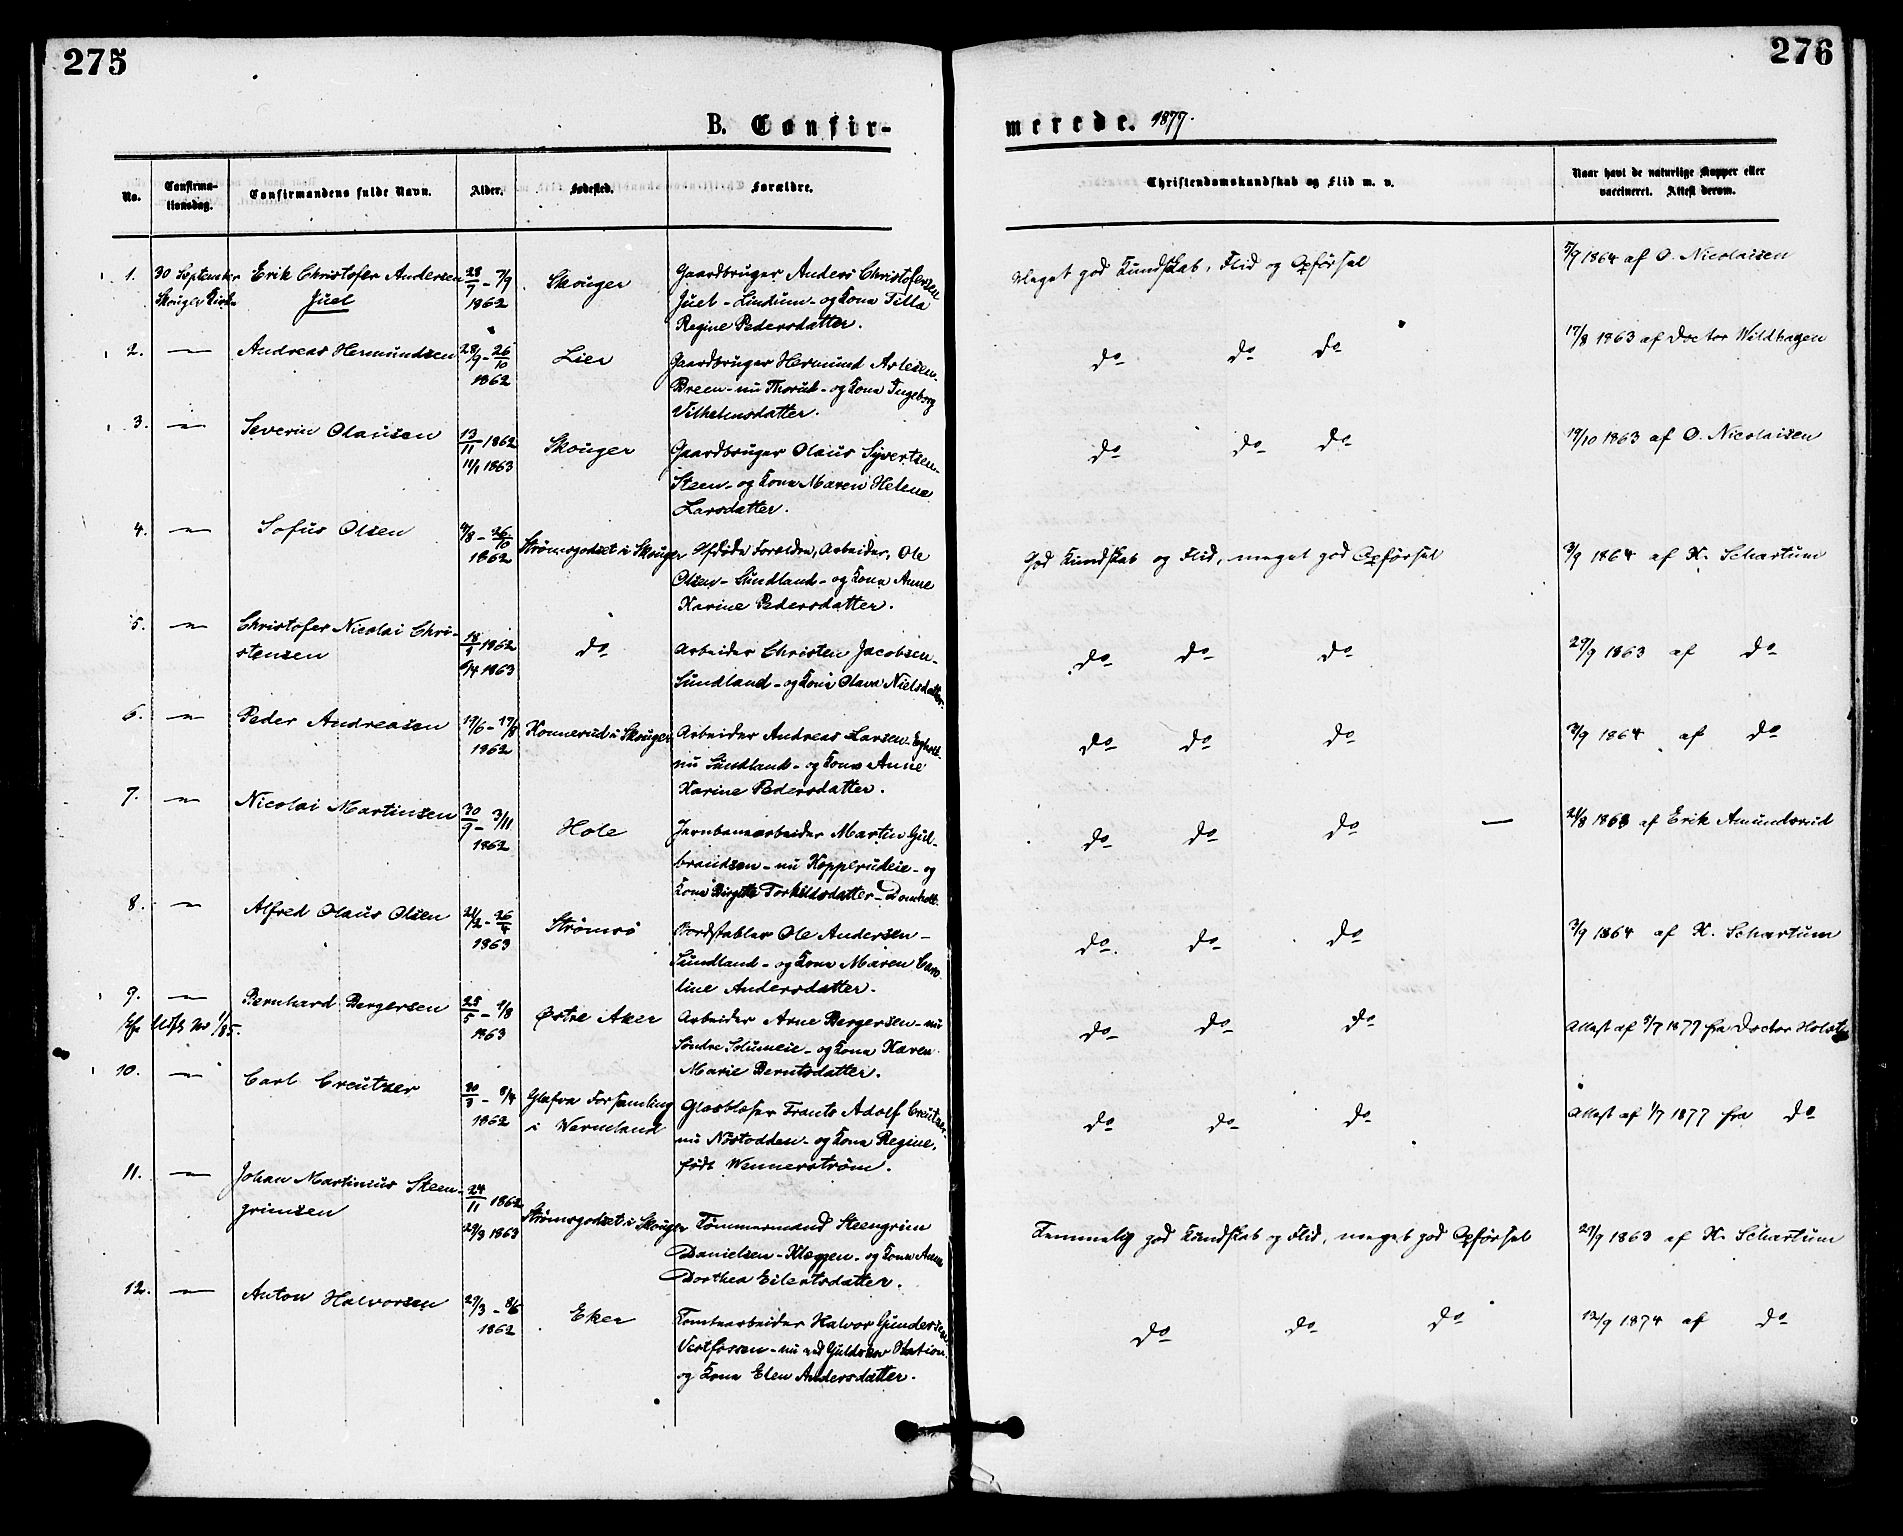 275
276
B. Confir-
merede. 1877.
No.
Confirma-
tionsdag.
Confirmandens fulde Navn.
Alder.
Fødested.
Forældre.
Christendomskundskab og Flid m. v.
Naar havt de naturlige Kopper eller
vaccineret. Attest derom.
1. 30 September Erik Christofer Andersen 28/7 - 7/9 Skouger Gaardbruger Anders Christofersen Meget god Kundskab, Flid og Opførsel 5/9 1864 af O. Nicolaisen
Skouger Kirke Juel 1862 Juel - Lindum - og Kone Tilla
Regine Pedersdatter.
2. — Andreas Hermundsen 28/9 - 26/10 Lier Gaardbruger Hermund Avlesen - do do do 17/8 1863 af Doctor Wildhagen
1862 Breen - nu Thorud - og Kone Ingeborg
Vilhelmsdatter.
3. — Severin Olausen 13/11 1862 Skouger Gaardbruger Olaus Syvertsen - do do do 19/10 1863 af O. Nicolaisen
11/1 1863 Steen - og Kone Maren Helene
Larsdatter.
4. — Sofus Olsen 4/8 - 26/10 Strømsgodset i Skouger Afdøde Forældre, Arbeider, Ole God Kundskab og Flid, meget god Opførsel 3/9 1864 af K. Schartum
1862 Olsen - Sundland - og Kone Anne
Karine Pedersdatter.
5. — Christofer Nicolai Chri- 1862 do Arbeider Christen Jacobsen - do do do 29/9 1863 af do
stensen 6/4 1863 Sundland - og Kone Olava Nielsdatter.
6. — Peder Andreasen 19/6 - 17/8 Konnerud i Skouger Arbeider Andreas Larsen - do do do 3/9 1864 af do
1862 nu Sundland - og Kone Anne
Karine Pedersdatter.
7. — Nicolai Martinsen 30/9 - 3/11 Hole Jernbanearbeider Martin Gul- do do do — 21/8 1863 af Erik Amundsrud
1862 brandsen - nu Kopperudeie - og
Kone Birgitte Torkildsdatter -
8. — Alfred Olaus Olsen 21/2 - 26/4 Strømsø Bordstabler Ole Andersen - do do do 3/9 1864 af K. Schartum
1863 Sundland - og Kone Maren Caro-
line Andersdatter.
9. — Bernhard Bergersen 25/5 - 1/8 Østre Aker Arbeider Arne Bergersen - nu do do do Attest af 5/7 1877 fra Doctor Holst
1863 Søndre Solumeie - og Kone Karen
Marie Berntsdatter.
10. — Carl Creutzer 30/3 - 8/4 Glafva Forsamling Glasblæser Frants Adolf Creutzer - do do do Attest af 1/7 1877 fra do
1862 i Wermland nu Nøstodden - og Kone Regine,
født Wennerstrøm.
11. — Johan Martinius Steen- 24/11 1862 Strømsgodset i Skouger Tømmermand Steengrim Temmelig god Kundskab og Flid, meget god Opførsel 29/9 1863 af K. Schartum
grimsen 29/3 1863 Danielsen - Kleggen - og Kone Anne
Dorthea Eilertsdatter.
12. — Anton Halvorsen 27/3 - 8/6 Eker Tomtearbeider Halvor Gundersen do do do 12/9 1874 af do
1862 Vestfossen - nu ved Guldskov Station
og Kone Elen Andersdatter.